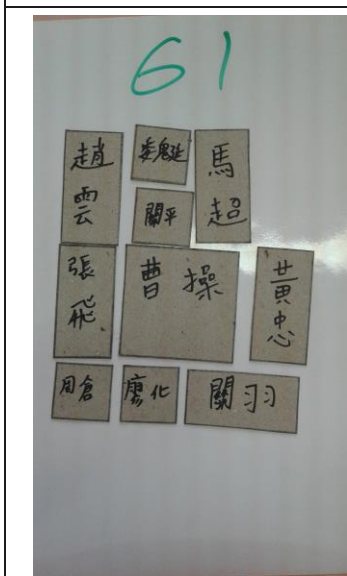 61
趙雲
魏延
馬超
關平
張飛
曹操
黃忠
周倉
廖化
關羽